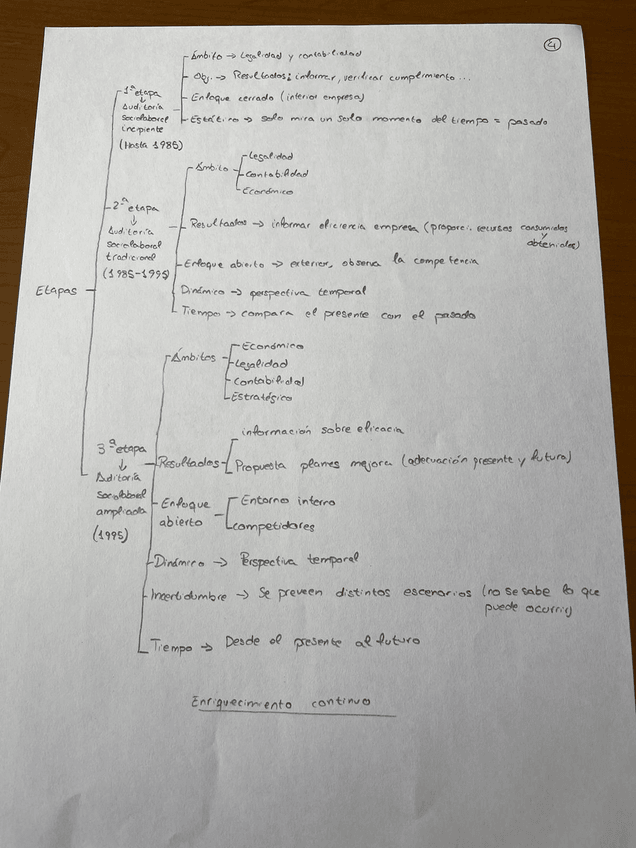 4
Ámbito → Legalidad y contabilidad
Obj. → Resultados: informar, verificar cumplimiento...
1ª etapa
↓
Auditoría
sociolaboral
incipiente
(Hasta 1985)
Enfoque cerrado (interior empresa)
Estático → solo mira un solo momento del tiempo = pasado
2ª etapa
↓
Auditoría
sociolaboral
tradicional
(1985-1995)
Ámbito
Legalidad
Contabilidad
Económico
Resultados → informar eficiencia empresa (proporci. recursos consumidos
y
obtenidos)
Enfoque abierto → exterior, observa la competencia
Dinámico → perspectiva temporal
Tiempo → compara el presente con el pasado
Etapas
3ª etapa
↓
Auditoría
sociolaboral
ampliada
(1995)
Ámbitos
Económico
Legalidad
Contabilidad
Estratégico
Resultados
información sobre eficacia
Propuesta planes mejora (adecuación presente y futura)
Enfoque
abierto
Entorno interno
Competidores
Dinámico → Perspectiva temporal
Incertidumbre → Se preveen distintos escenarios (no se sabe lo que
puede ocurrir)
Tiempo → Desde el presente al futuro
Enriquecimiento continuo